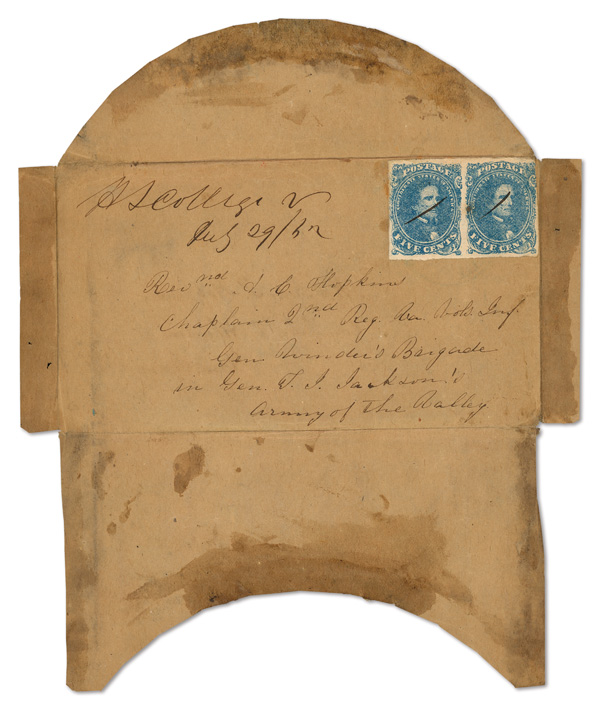 H S College V
July 29/62
POSTAGE POSTAGE
FIVE CENTS FIVE CENTS
Revnd A. C. Hopkins
Chaplain 2nd Reg. Va. Vol. Inf.
Gen Winder's Brigade
in Gen. T. J. Jackson's
Army of the Valley